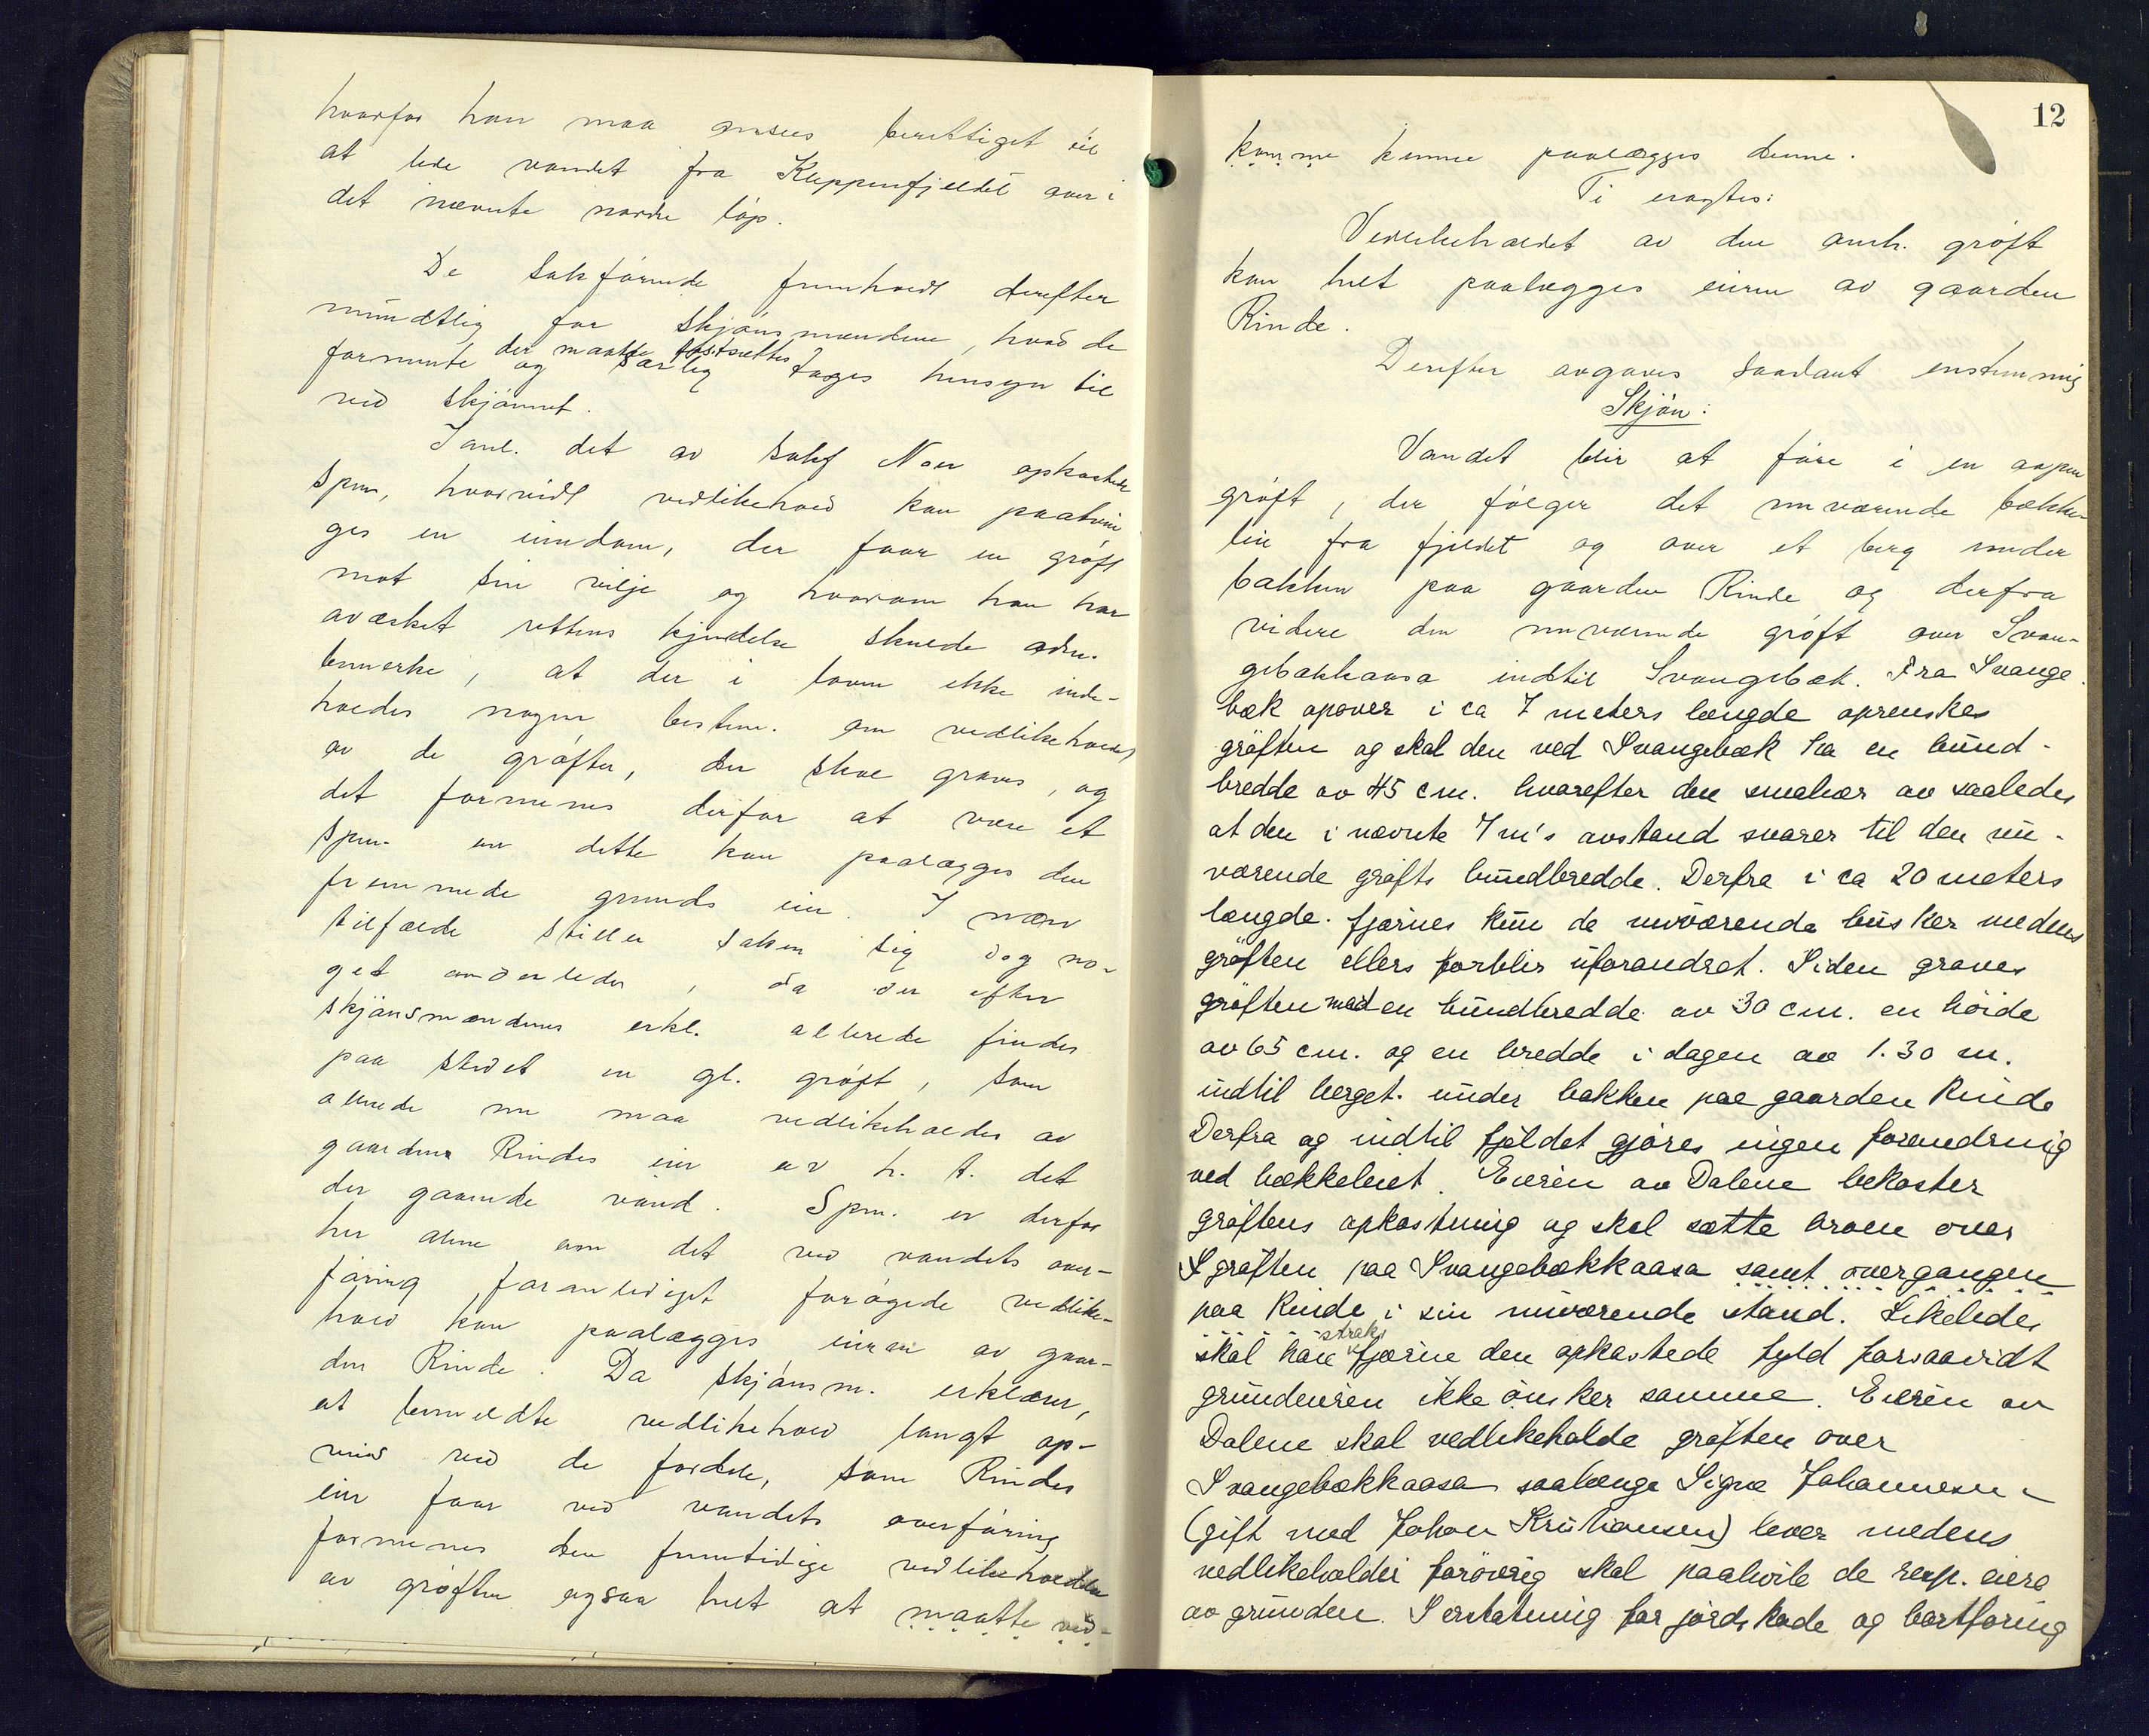 hvorfor han maa ansees berettiget til
at lede vandet fra Kleppenfjeldet over i
det nævnte nordre løp.
De sakførende fremholdt derefter
mundtlig for skjønsmændene, hvad de
formente der maatte fastsættes
og særlig tages hensyn til
ved skjønnet.
I anl. det av sakf. Noer opkastede
spm, hvorvidt vedlikehold kan paatvin
ges en eiendom, der faar en grøft
mot sin vilje og hvorom han har
avæsket rettens kjendelse skulde adm.
bemerke, at der i loven ikke inde-
holdes nogen bestem. om vedlikeholdet
av de grøfter, der skal graves, og
det formenes derfor at være et
spm. om dette kan paalægges den
fremmede grunds eier. I nærv
tilfælde stiller saken sig dog no-
get anderledes, da der efter
skjønsmændenes erkl. allerede findes
paa stedet en gl. grøft, som
allerede nu maa vedlikeholdes av
gaarden Rindes eier av h. t. det
der gaaende vand. Spm. er derfor
her alene om det ved vandets over-
føring foranlediget forøgede vedlike-
hold kan paalægges eieren av gaar-
den Rinde. Da skjønsm. erklærer,
at bemeldte vedlikehold langt op-
veies ved de fordele, som Rindes
eier faar ved vandets overføring
formenes den fremtidige vedlikeholdelse
av grøften ogsaa helt at maatte ved-
12
komme kunne paalægges denne.
Ti eragtes:
Vedlikeholdet av den anh. grøft
kan helt paalægges eieren av gaarden
Rinde.
Derefter avgaves saadant enstemmig
Skjøn:
Vandet blir at føre i en aapen
grøft, der følger det nuværende bække-
leie fra fjeldet og over et berg under
bakken paa gaarden Rinde og derfra
videre den nuværende grøft over Svan-
gebækkaasa indtil Svangebæk. Fra Svange
bæk opover i ca 7 meters længde oprenskes
grøften og skal den ved Svangebæk ha en bund-
bredde av 45 cm. hvorefter den smalner av saaledes
at den i nævnte 7 m's avstand svarer til den nu-
værende grøfts bundbredde. Derfra i ca 20 meters
længde fjærnes kun de nuværende busker medens
grøften ellers forblir uforandret. Siden graves
grøften med en bundbredde av 30 cm. en høide
av 65 cm. og en bredde i dagen av 1.30 m.
indtil berget under bakken paa gaarden Rinde
Derfra og indtil fjeldet gjøres ingen forandring
ved bækkeleiet. Eieren av Dalene bekoster
grøftens opkastning og skal sætte broen over
grøften paa Svangebækkaasa samt overgangen
paa Rinde i sin nuværende stand. Likeledes
strax
skal han fjærne den opkastede fyld forsaavidt
grundeieren ikke ønsker samme. Eieren av
Dalene skal vedlikeholde grøften over
Svangebækkaasa saalænge Signe Johannesen
(gift med Johan Kristiansen) lever medens
vedlikeholdet forøvrig skal paahvile de resp. eiere
av grunden. I erstatning for jordskade og bortføring